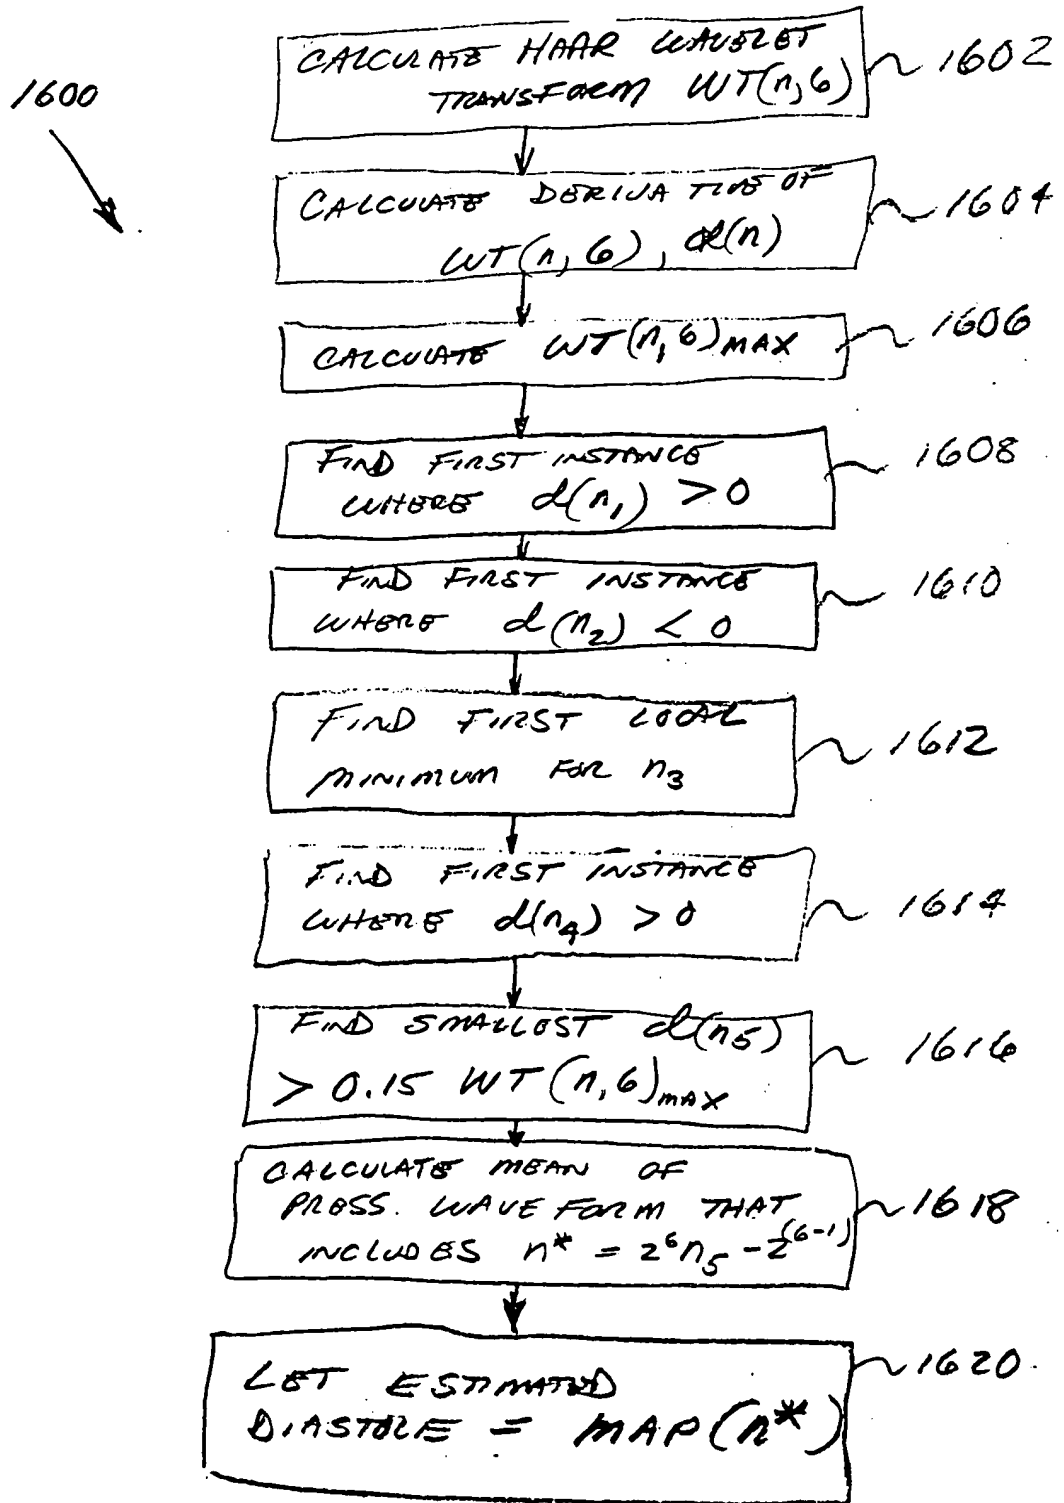 1600
CALCULATE HAAR WAVELET
TRANSFORM WT(n,6)
1602
CALCULATE DERIVATIVE OF
WT(n,6), d(n)
1604
CALCULATE WT(n,6)MAX
1606
FIND FIRST INSTANCE
WHERE d(n₁) > 0
1608
FIND FIRST INSTANCE
WHERE d(n₂) < 0
1610
FIND FIRST LOCAL
MINIMUM FOR n₃
1612
FIND FIRST INSTANCE
WHERE d(n₄) > 0
1614
FIND SMALLEST d(n₅)
> 0.15 WT(n,6)MAX
1616
CALCULATE MEAN OF
PRESS. WAVEFORM THAT
INCLUDES n* = 2⁶n₅ - 2⁽⁶⁻¹⁾
1618
LET ESTIMATED
DIASTOLE = MAP(n*)
1620